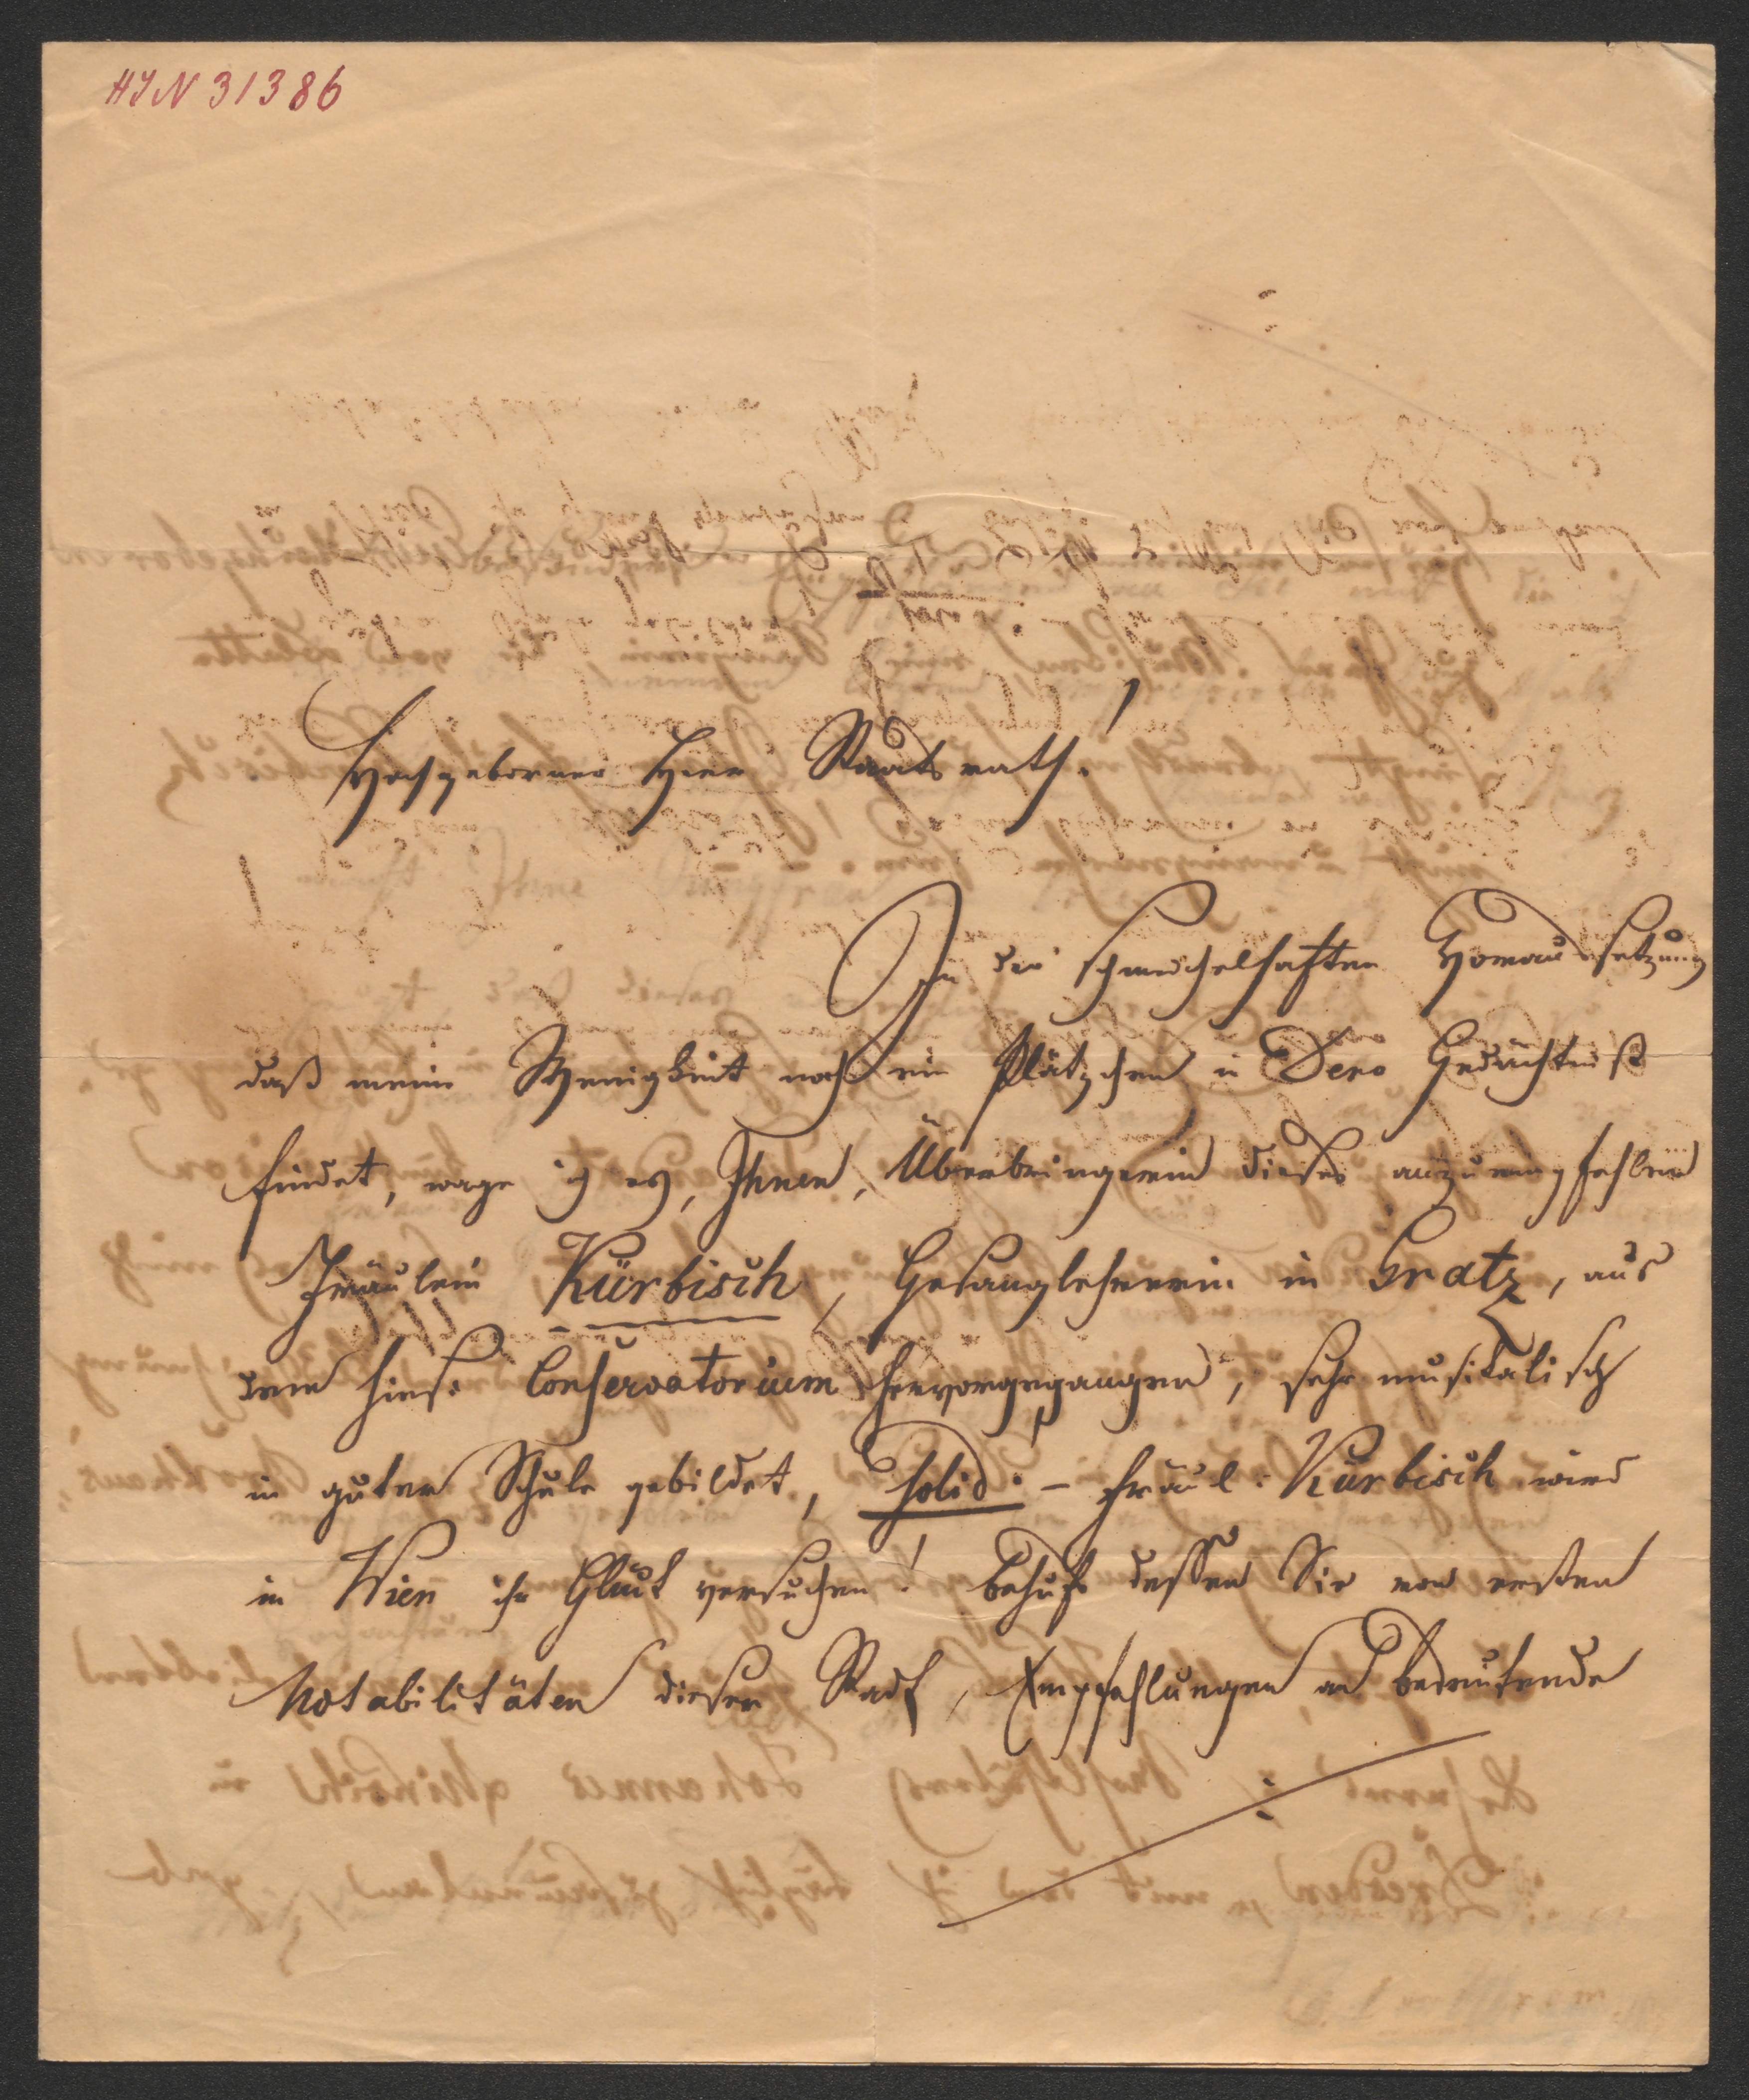 HIN 31386
Hochgeborner Herr Staatsrath!
In der schmeichelhaften Voraussetzung
daß meine Wenigkeit noch ein Plätzchen in Dero Gedächtniß
findet, wage ich es, Ihnen, Überbringerin dieses anzuempfehlen
Fräulein Kürbisch, Gesanglehrerin in Gratz, aus
dem hies: Conservatorium hervorgegangen, sehr musikalisch
in guter Schule gebildet, solid: – Fräul: Kürbisch wird
in Wien ihr Glück versuchen! behufs dessen Sie von ersten
Notabilitäten dieser Stadt, Empfehlungen an bedeutende